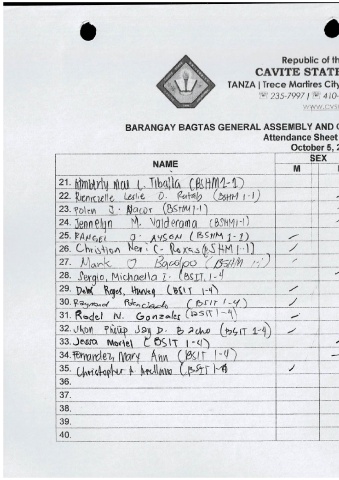 Republic of th
CAVITE STATE
TANZA | Trece Martires City
235-7997 | 410-
www.cvs
BARANGAY BAGTAS GENERAL ASSEMBLY AND
Attendance Sheet
October 5, 2
NAME SEX
M
21. Kimberly Mae L. Tiballa (BSHM 1-1)
22. Rienzelle Leslie O. (BSHM 1-1)
23. Polen J. Nacor (BSHM 1-1)
24. Jennelyn M. Valderama (BSHM 1-1)
25. RANGEL J. AYSON (BSHM 1-1)
26. Christian Ner C. Roxas (BSHM 1-1)
27. Mark O Bacolpo (BSHM
28. Sergio, Michaella I. (BSIT, 1-4)
29. Delos Reyes, (BSIT 1-4)
30. Raymond (BSIT 1-4)
31. Rodel N. Gonzales (BSIT 1-4)
32. Jhon Philip Jay D. (BSIT 1-4)
33. Jessa Mariel (BSIT 1-4)
34. Fernandez, Mary Ann (BSIT 1-4)
35. Christopher A Arellano (BSIT 1-4)
36.
37.
38.
39.
40.